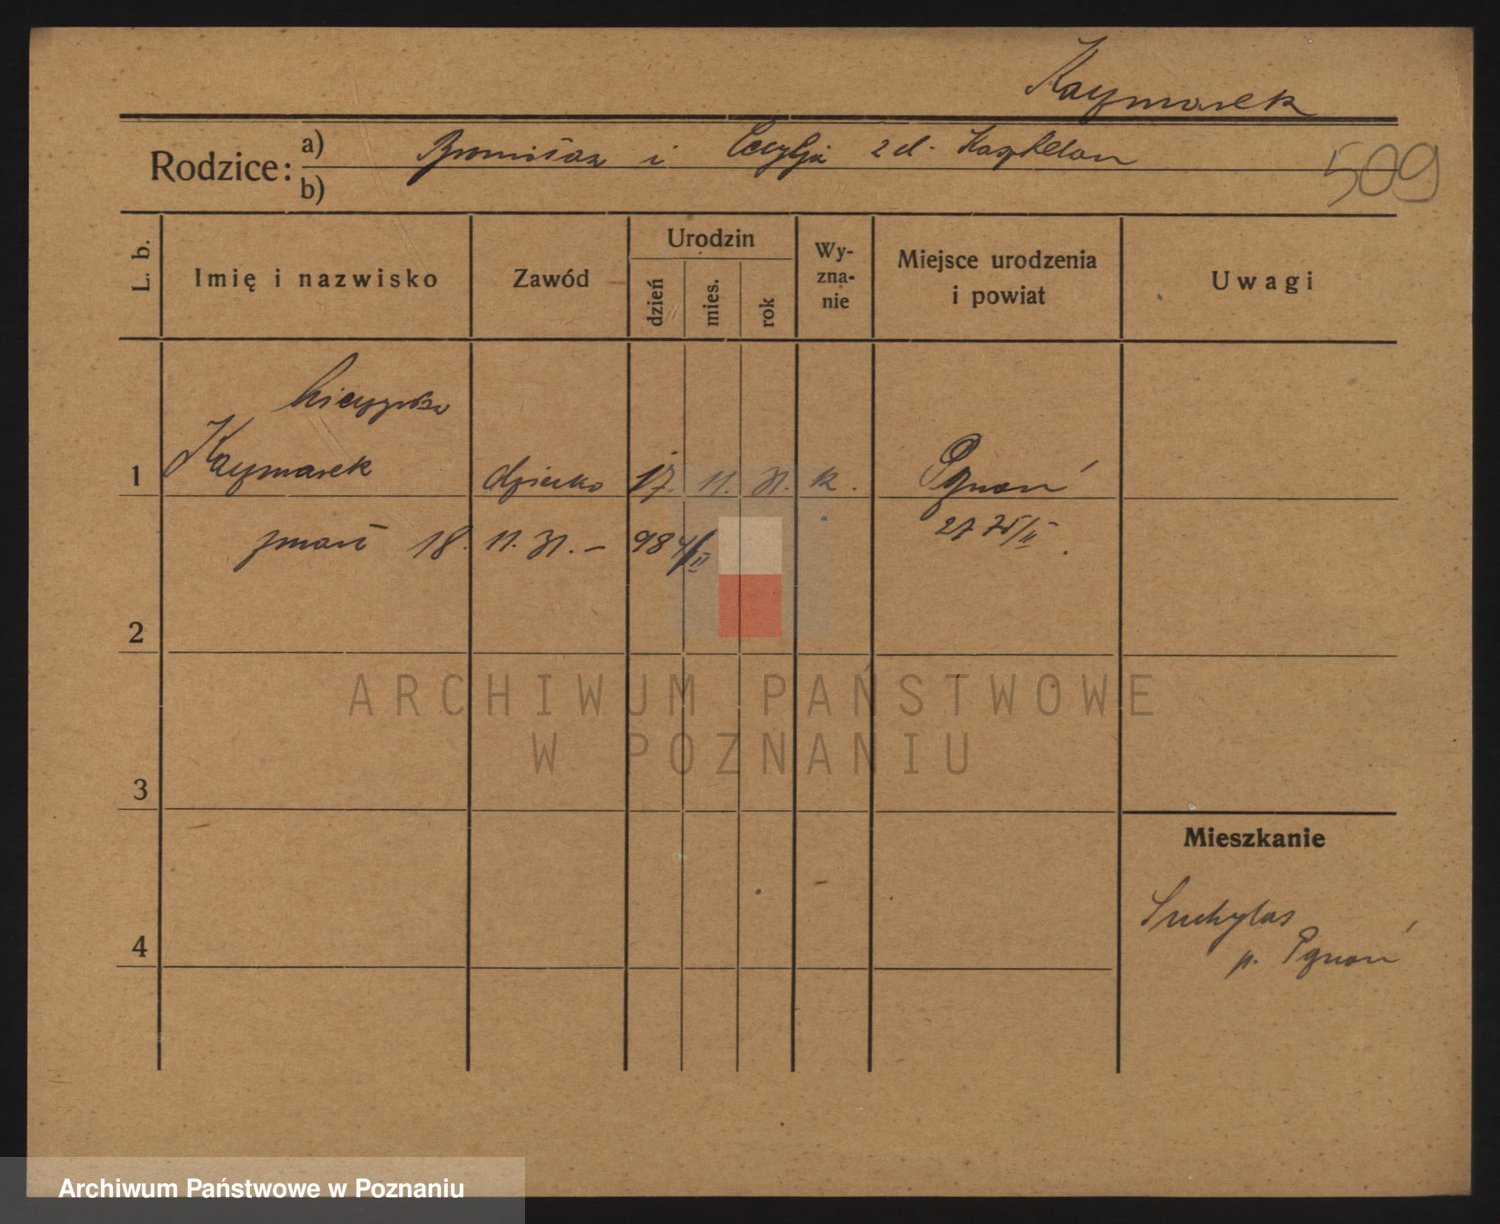 Kaczmarek
509
Rodzice:
a) Bronisław i Cecylja z d. Kasztelan
b)
L. b.
Imię i nazwisko
Zawód
Urodzin
dzień
mies.
rok
Wy-
zna-
nie
Miejsce urodzenia
i powiat
Uwagi
1 Kaczmarek dziecko 17. 11. 31. k. Poznań
zmarł 18. 11. 31. –
2
3
4
Mieszkanie
Suchylas
p. Poznań
ARCHIWUM PAŃSTWOWE
W POZNANIU
Archiwum Państwowe w Poznaniu